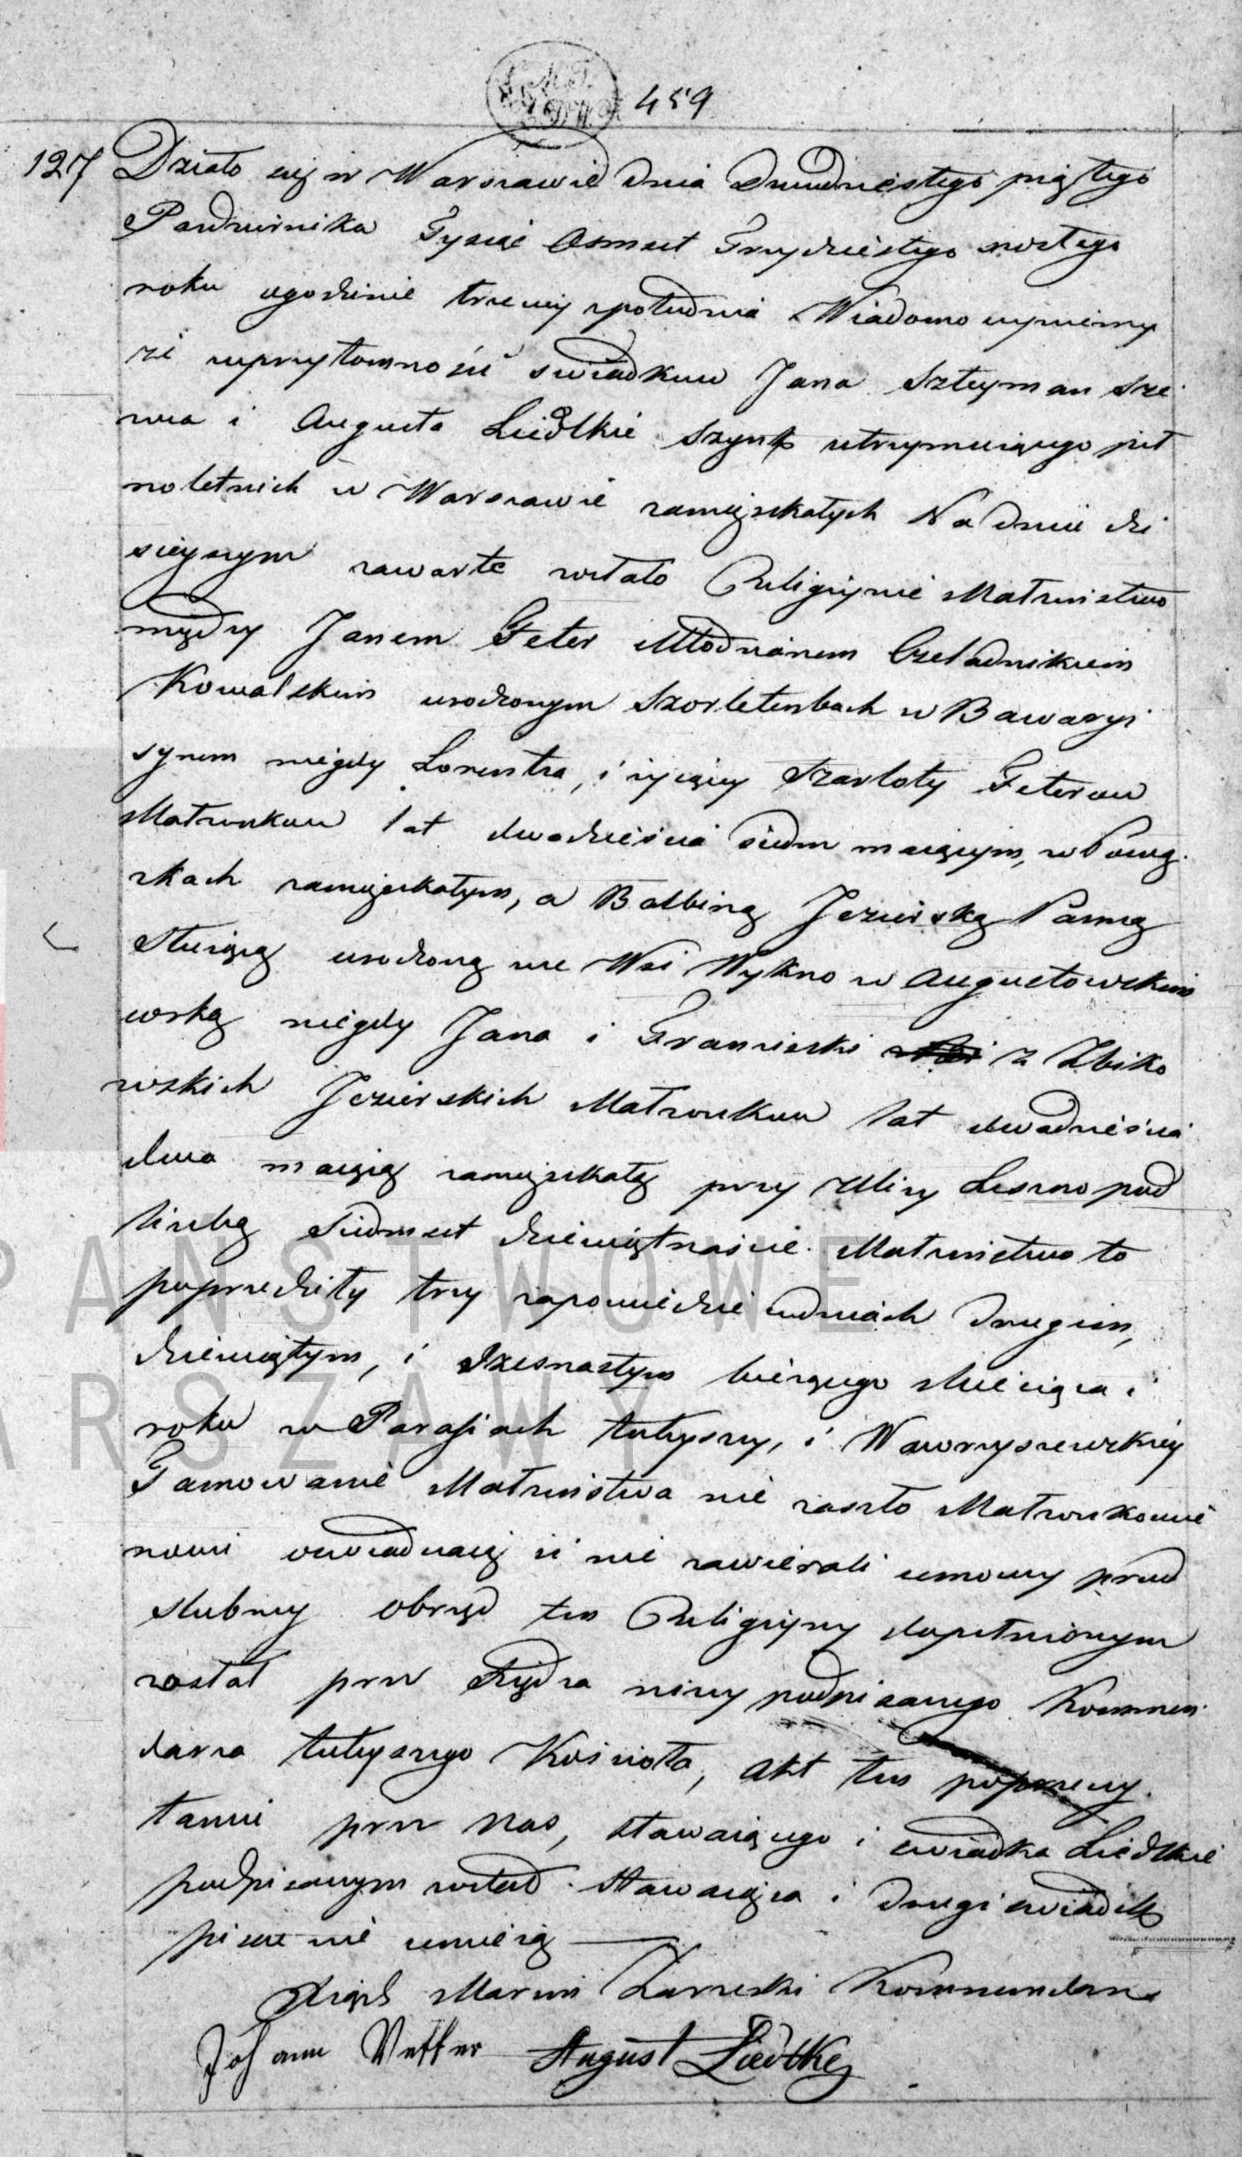 459
127 Działo się w Warszawie dnia Dwudziestego piątego
Pazdziernika Tysiąc Osmset Trzydziestego szostego
roku ogodzinie trzeciey społudnia Wiadomo czyniemy
że wprzytomności swiadkow Jana Szteyman Sze
wca i Augusta Liedtkie Szynk utrzymuiącego peł
noletnich w Warszawie zamięszkałych Na dniu dzi
sieyszym zawarte zostało Religiyne Małżeństwo
między Janem Feter Młodzianem Czeladnikiem
Kowalskim urodzonym Szorletenbach w Bawaryi
synem niegdy Lorentza, i żyiącey Szarloty Feterow
Małżonkow lat dwadzieścia siedm maiącym, w Powąz
zkach zamięszkałym, a Balbiną Jezierską Panną
Służącą urodzoną we Wsi Wykno w Augustowskim
corką niegdy Jana i Franciszki z Zbiko
wskich Jezierskich Małżonkow lat dwadzieścia
dwa maiącą zamięszkałą przy Ulicy Leszno pod
liczbą Siedmset dziewiętnaście. Małżeństwo to
poprzedziły trzy zapowiedzie wdniach drugim,
dziewiątym, i szesnastym bieżącego Miesiąca i
roku w Parafiach tuteyszy, i Wawrzyszewskiey
Tamowanie Małżeństwa nie zaszło Małżonkowie
nowi oswiadczaią iż nie zawierali umowy przed
slubney obrzęd ten Religiyny dopełnionym
został przez Xiędza niżey podpisanego Kommen
darza tuteyszego Kościoła, Akt ten poprzeczy
taniu przez Nas, stawaiącego i swiadka Liedtkie
podpisanym został. Stawaiąca i drugi swiadek
pisać nie umieią
Xiądz Marcin Zarzeski Kommendarz
Johann Vetter August Liedtke
PAŃSTWOWE
WARSZAWY